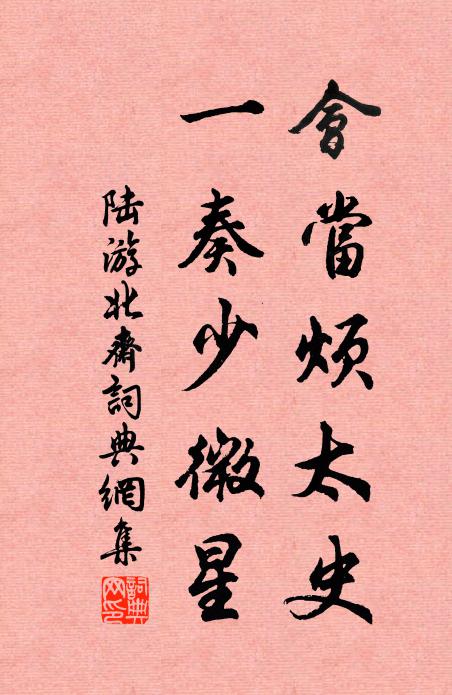 會當煩太史
一奏少微星
陆游北齋詞典網集
詞典
网印